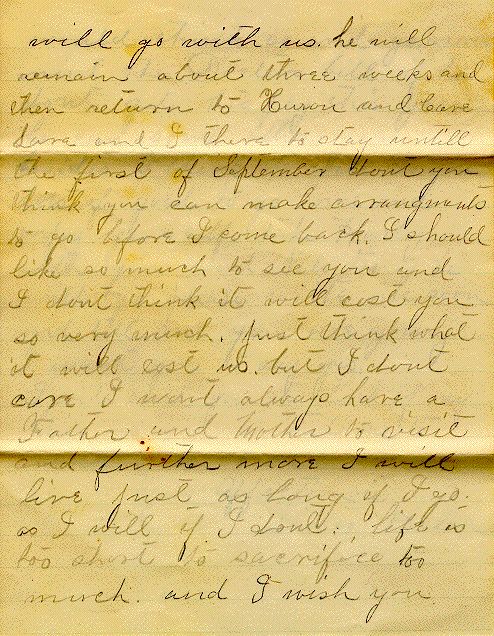 will go with us. he will
remain about three weeks and
then return to Huron and leave
Dave and I there to stay untill
the first of September dont you
think you can make arrangments
to go before I come back. I should
like so much to see you and
I dont think it will cost you
so very much. Just think what
it will cost us. but I dont
care I wont always have a
Father and Mother to visit
and further more I will
live just as long if I go.
as I will if I dont. life is
too short to sacrifice too
much. and I wish you